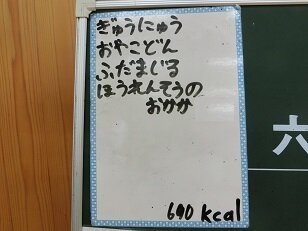 ぎゅうにゅう
おやこどん
ふだまじる
ほうれんそうの
おかか
690 kcal
六